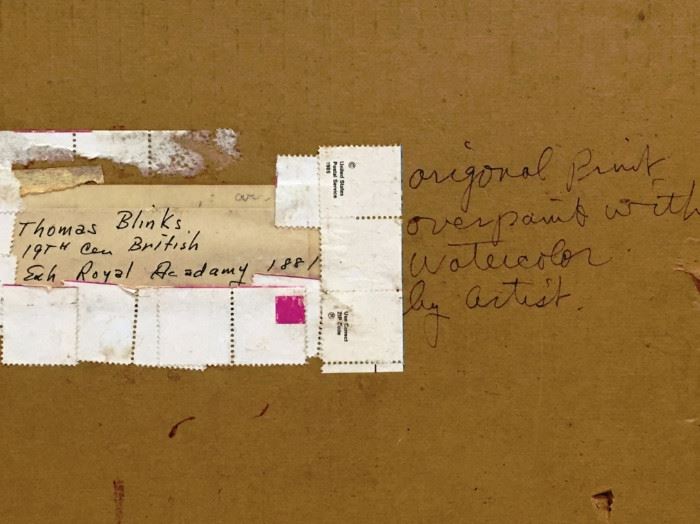 Thomas Blinks
19TH Cen British
Exh Royal Acadamy 1881
origonal Print
overpaint with
watercolor
by artist.
©
United States
Postal Service
1985
Use Correct
ZIP Code
®